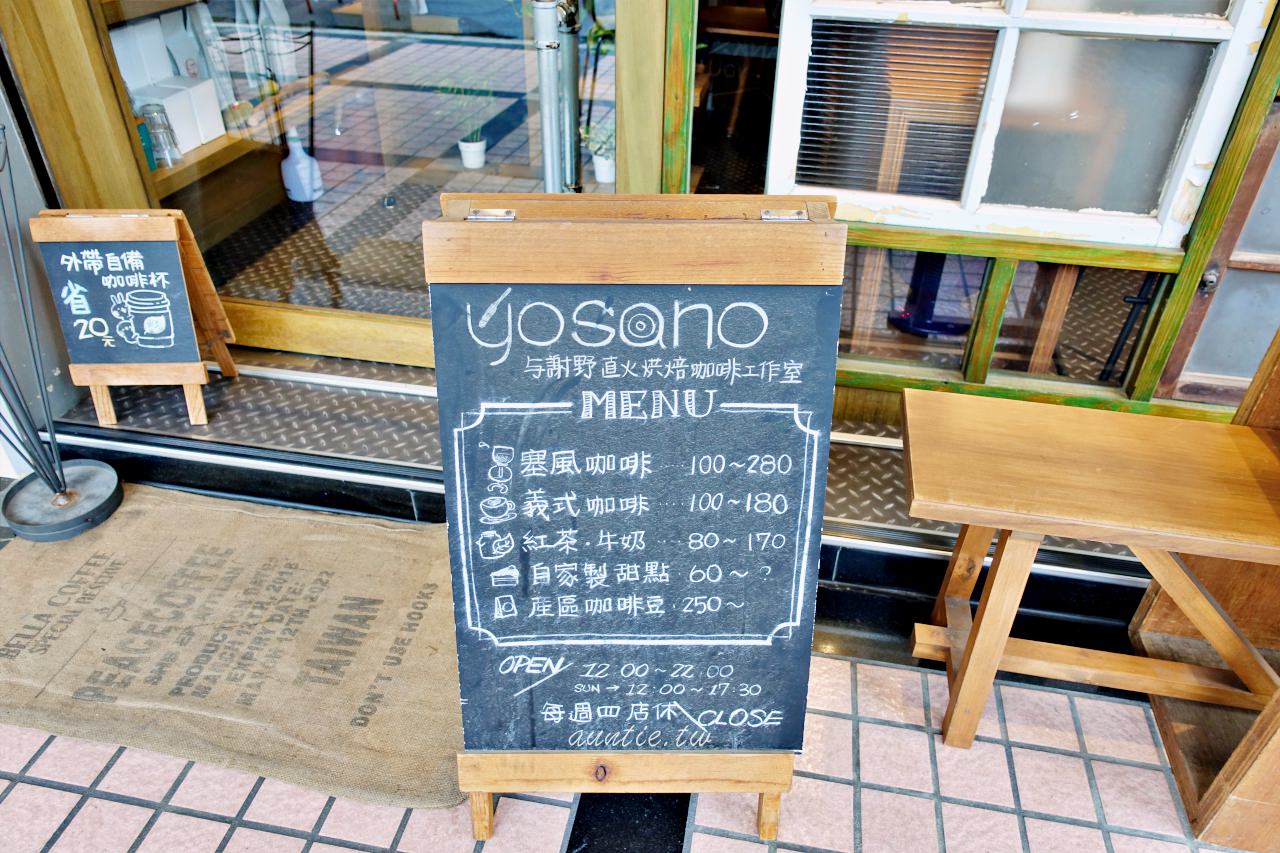 外帶自備
咖啡杯
省
20元
yosano
与謝野直火烘焙咖啡工作室
MENU
塞風咖啡 ···· 100~280
義式咖啡 ···· 100~180
紅茶·牛奶 ···· 80~170
自家製甜點 60~?
産區咖啡豆·250~
OPEN 12:00~22:00
SUN→12:00~17:30
每週四店休 CLOSE
auntie.tw
BELLA COFFEE
SPECIAL RESERVE
PEACECOFFEE
TAIWAN
DON'T USE HOOKS